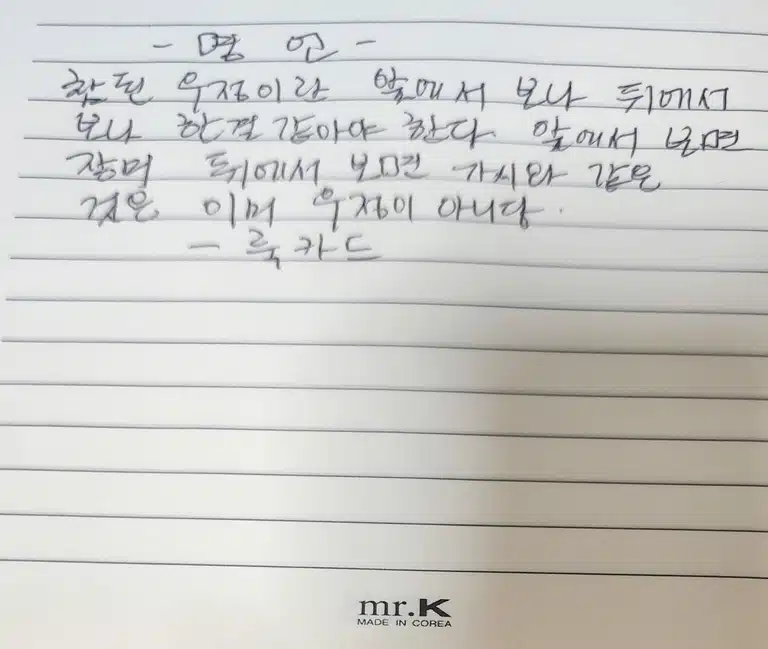 - 명 언 -
참된 우정이란 앞에서 보나 뒤에서
보나 한결같아야 한다. 앞에서 보면
장미 뒤에서 보면 가시와 같은
것은 이미 우정이 아니다.
- 룩카드
mr.K
MADE IN COREA